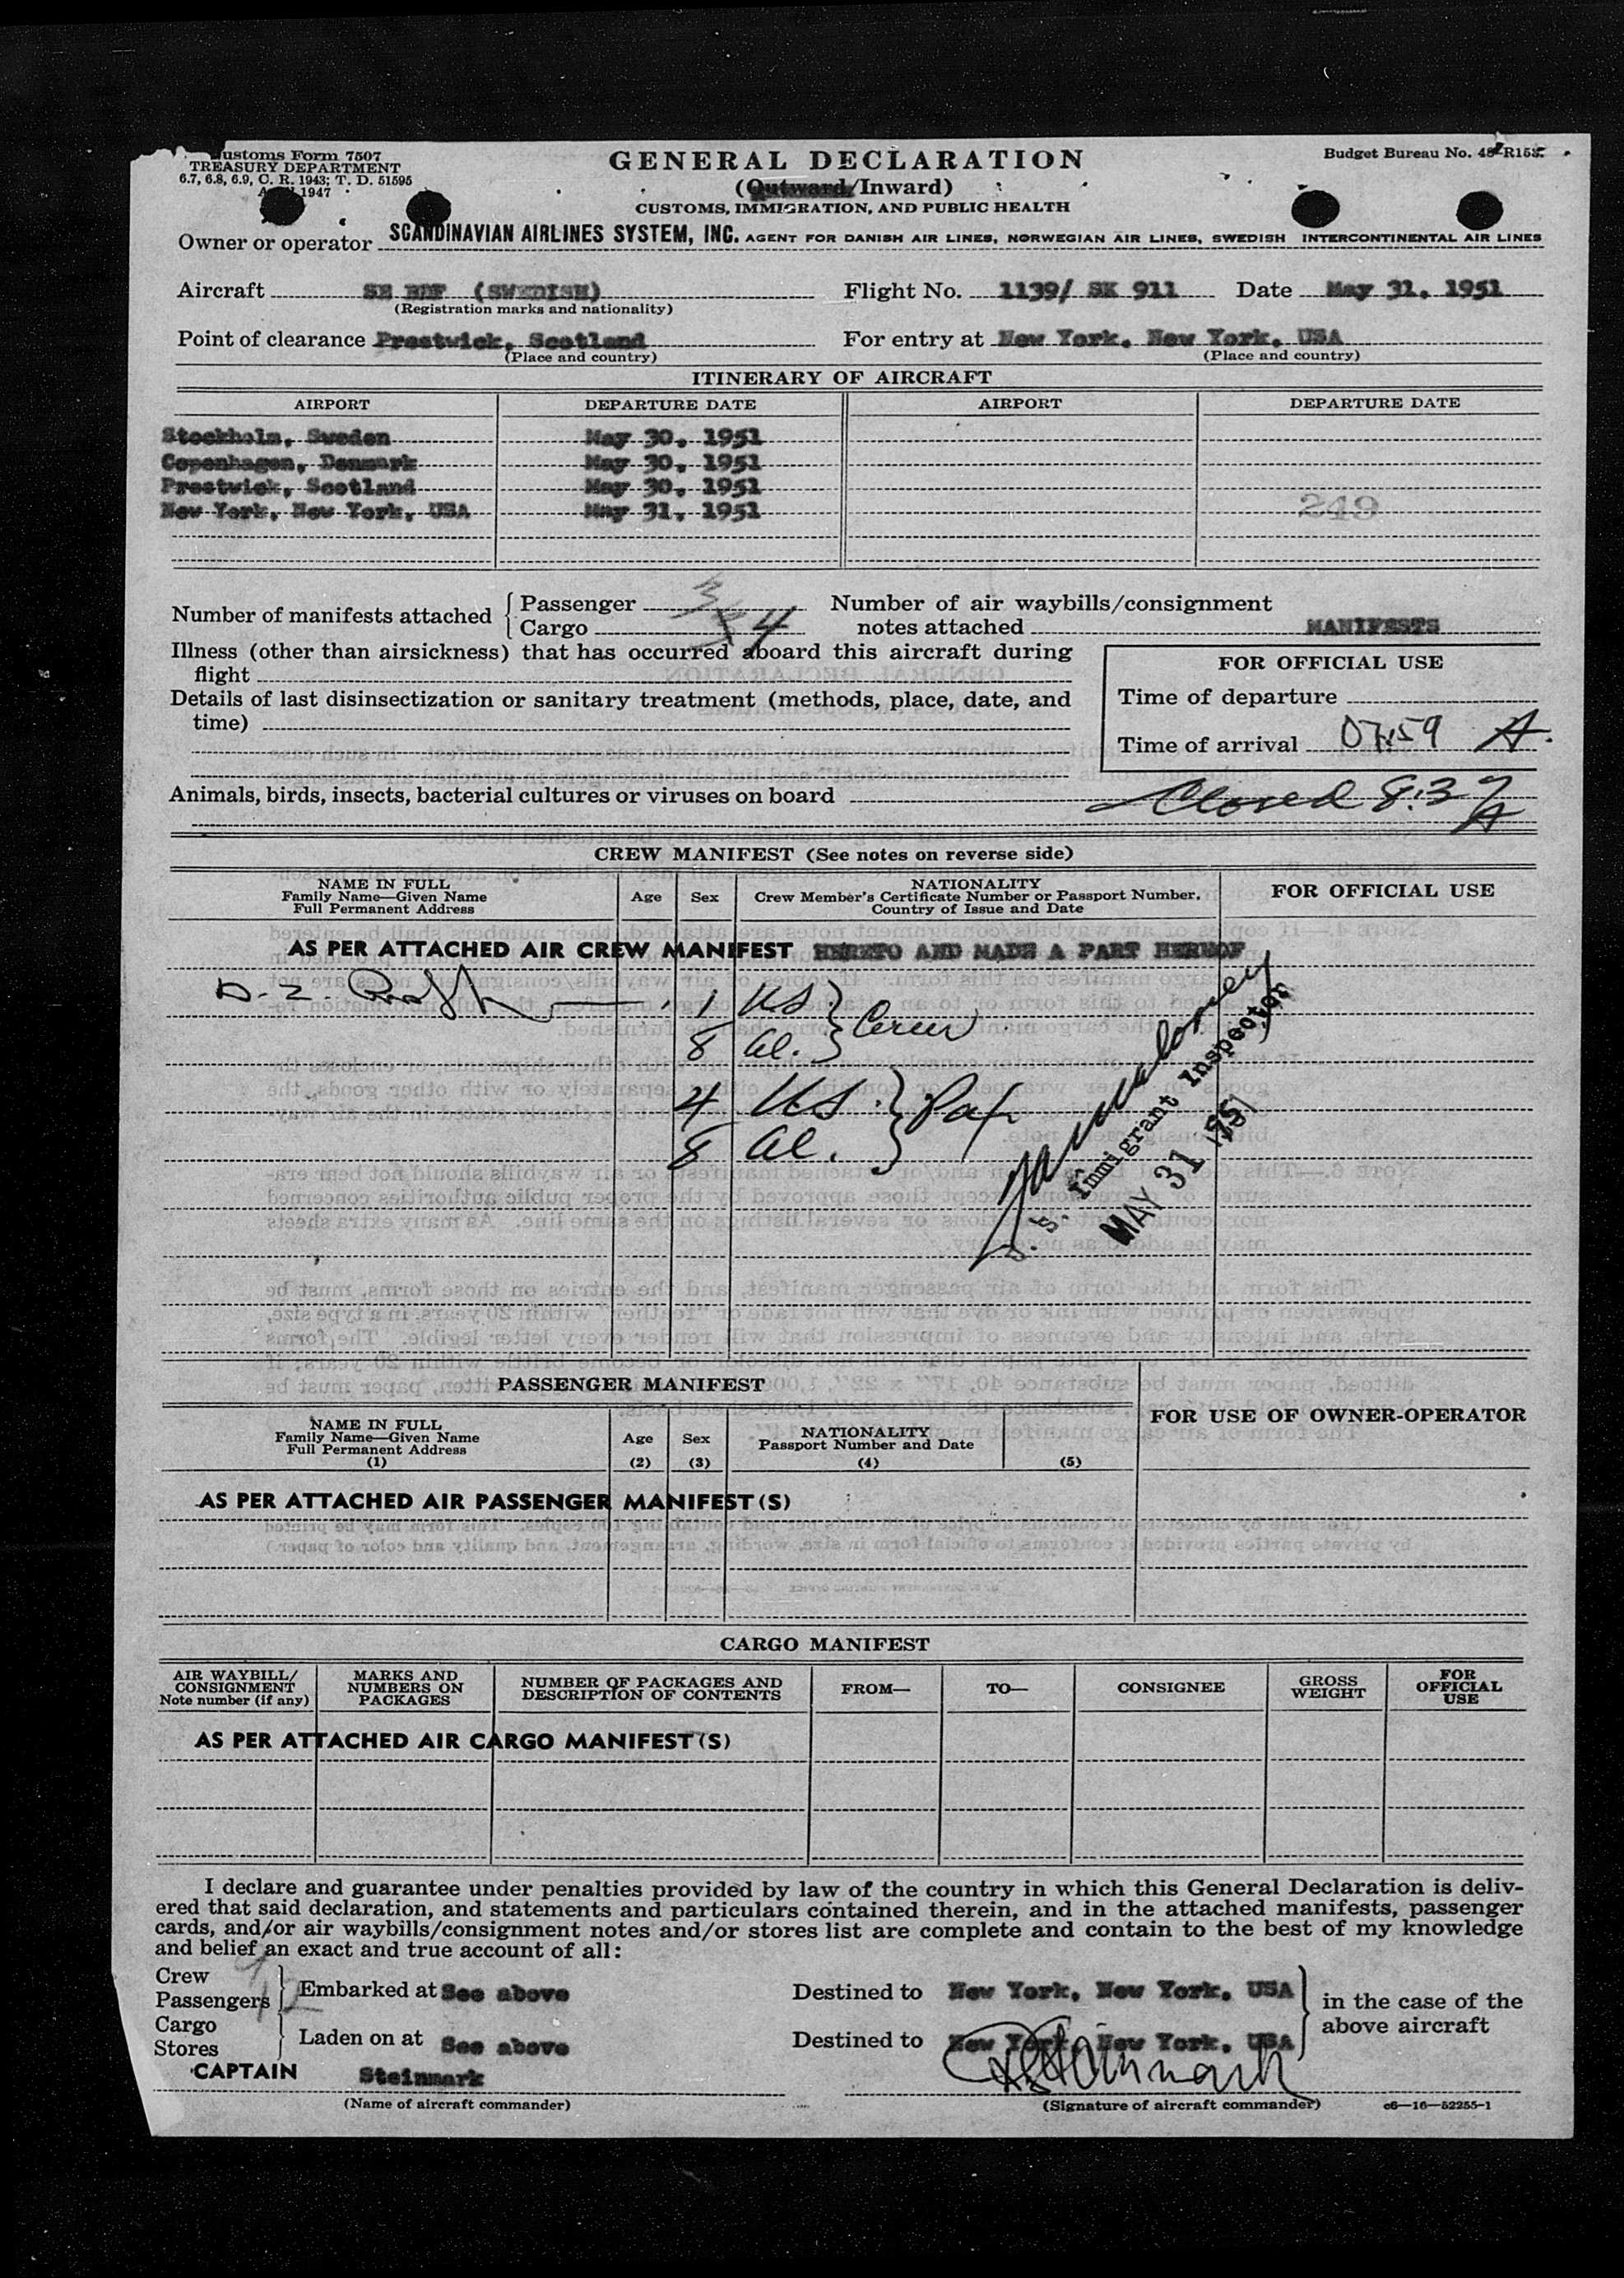 Customs Form 7507
TREASURY DEPARTMENT
6.7, 6.8, 6.9, C. R. 1943; T. D. 51595
1947
GENERAL DECLARATION
(Outward/Inward)
CUSTOMS, IMMIGRATION, AND PUBLIC HEALTH
Budget Bureau No. 48-R153.
Owner or operator SCANDINAVIAN AIRLINES SYSTEM, INC. AGENT FOR DANISH AIR LINES, NORWEGIAN AIR LINES, SWEDISH INTERCONTINENTAL AIR LINES
Aircraft SE BDF (SWEDISH) Flight No. 1139/ SK 911 Date May 31, 1951
(Registration marks and nationality)
Point of clearance Prestwick, Scotland For entry at New York, New York, USA
(Place and country) (Place and country)
ITINERARY OF AIRCRAFT
AIRPORT DEPARTURE DATE AIRPORT DEPARTURE DATE
Stockholm, Sweden May 30, 1951
Copenhagen, Denmark May 30, 1951
Prestwick, Scotland May 30, 1951
New York, New York, USA May 31, 1951 249
Number of manifests attached { Passenger 3 Number of air waybills/consignment
Cargo 4 notes attached MANIFESTS
Illness (other than airsickness) that has occurred aboard this aircraft during
flight
FOR OFFICIAL USE
Details of last disinsectization or sanitary treatment (methods, place, date, and
time)
Time of departure
Time of arrival 07:59 A.
Animals, birds, insects, bacterial cultures or viruses on board Closed 8:37 A
CREW MANIFEST (See notes on reverse side)
NAME IN FULL
Family Name—Given Name
Full Permanent Address
Age Sex
NATIONALITY
Crew Member's Certificate Number or Passport Number,
Country of Issue and Date
FOR OFFICIAL USE
AS PER ATTACHED AIR CREW MANIFEST HERETO AND MADE A PART HEREOF
1 US } Crew
8 Al.
4 US } Pax
8 Al.
U. S. Immigrant Inspector
MAY 31 1951
PASSENGER MANIFEST
NAME IN FULL
Family Name—Given Name
Full Permanent Address
(1)
Age
(2)
Sex
(3)
NATIONALITY
Passport Number and Date
(4) (5)
FOR USE OF OWNER-OPERATOR
AS PER ATTACHED AIR PASSENGER MANIFEST(S)
CARGO MANIFEST
AIR WAYBILL/
CONSIGNMENT
Note number (if any)
MARKS AND
NUMBERS ON
PACKAGES
NUMBER OF PACKAGES AND
DESCRIPTION OF CONTENTS
FROM— TO— CONSIGNEE
GROSS
WEIGHT
FOR
OFFICIAL
USE
AS PER ATTACHED AIR CARGO MANIFEST(S)
I declare and guarantee under penalties provided by law of the country in which this General Declaration is deliv-
ered that said declaration, and statements and particulars contained therein, and in the attached manifests, passenger
cards, and/or air waybills/consignment notes and/or stores list are complete and contain to the best of my knowledge
and belief an exact and true account of all:
Crew 9
Passengers 12 } Embarked at See above Destined to New York, New York, USA } in the case of the
Cargo above aircraft
Stores } Laden on at See above Destined to New York, New York, USA
CAPTAIN Steinmark
(Name of aircraft commander) (Signature of aircraft commander) c6—16—52255-1